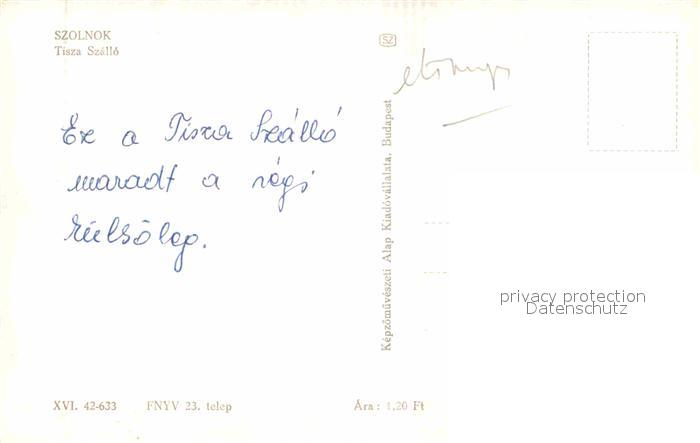 SZOLNOK
Tisza Szálló
SZ
Ez a Tisza Szálló
maradt a régi
külsőleg.
Képzőművészeti Alap Kiadóvállalata, Budapest
privacy protection
Datenschutz
XVI. 42-633 FNYV 23. telep Ára: 1,20 Ft